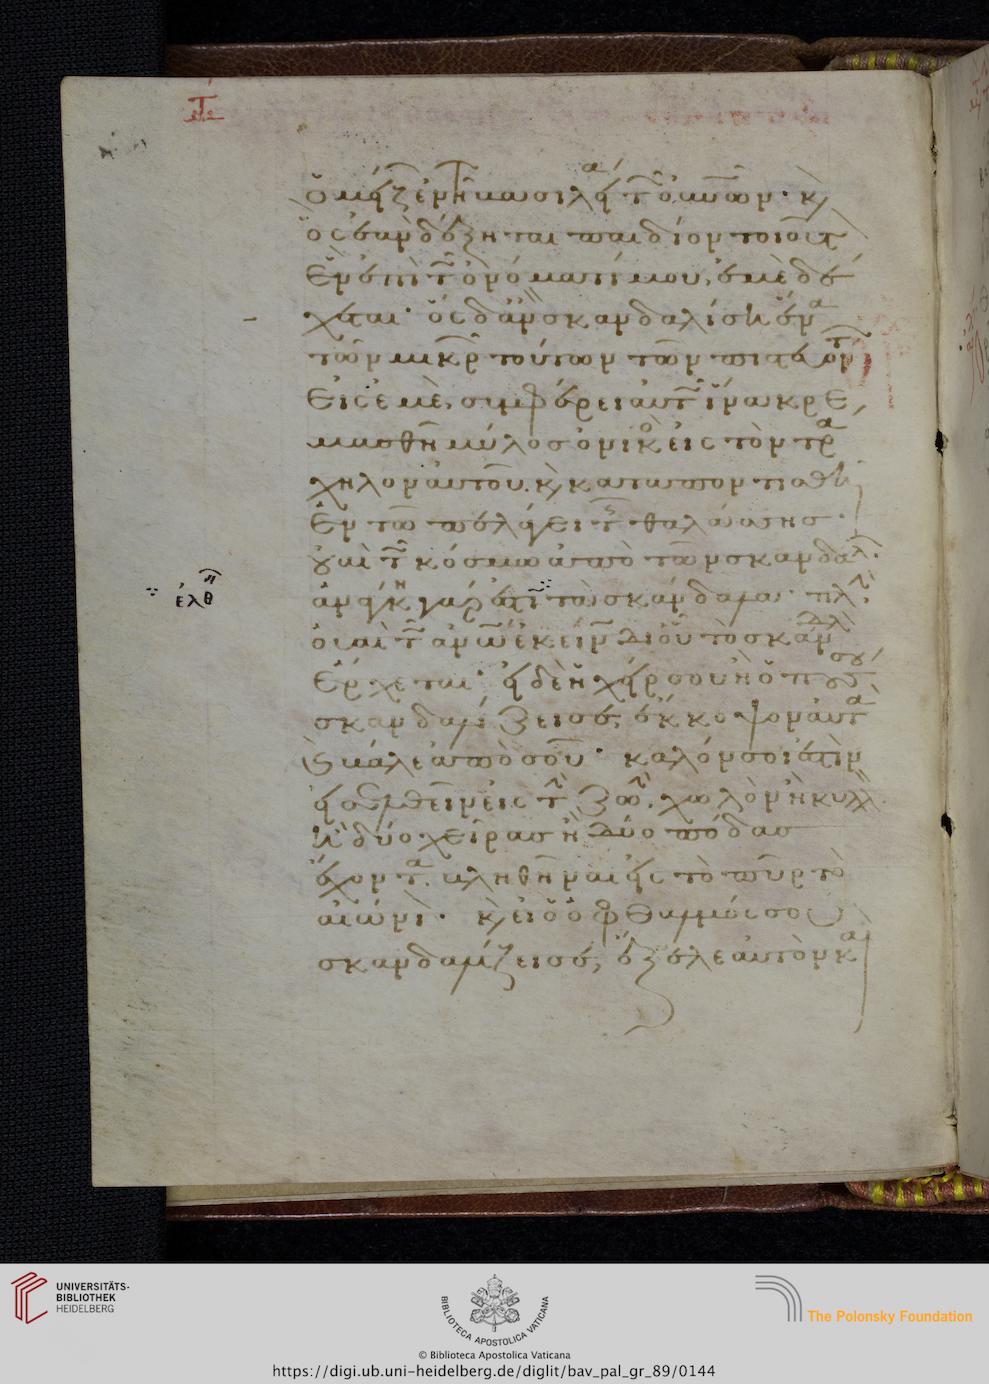 ὁ μείζων ἐν τῆ βασιλεί τῶν οὐνῶν· κ
ὃς ἐὰν δέξηται παιδίον τοιοῦτ
ἓν ἐπὶ τῶ ὀνόματί μου, ἐμὲ δέ
χεται· ὃς δ' ἂν σκανδαλίση ἕνα
τῶν μικρῶν τούτων τῶν πιστευόντ
εἰς ἐμὲ, συμφέρει αὐτῶ ἵνα κρε
μασθῆ μύλος ὀνικὸς εἰς τὸν τρα
χηλον αὐτοῦ. κ καταποντισθῆ
ἐν τῶ πελάγει τῆς θαλάσσης·
οὐαὶ τῶ κόσμω ἀπὸ τῶν σκανδάλ·
ἐλθ
ἀνάγκη γάρ ἐστι τὰ σκάνδαλα· πλὴν
οὐαὶ τῶ ἀνῶ ἐκείν δι' οὗ τὸ σκάνδαλ
ἔρχεται· εἰ δὲ ἡ χείρ σου ἢ ὁ πούς σου
σκανδαλίζει σε, ἔκκοψον αὐτὰ
κ βάλε ἀπὸ σοῦ· καλόν σοι ἐστὶν
εἰσελθεῖν εἰς τὴν ζωὴν. χωλὸν ἢ κυλλ
ἢ δύο χεῖρας ἢ δύο πόδας
ἔχοντα. βληθῆναι εἰς τὸ πῦρ τὸ
αἰώνι· κ εἰ ὁ ὀφθαλμός σου
σκανδαλίζει σε, ἔξελε αὐτὸν κα
UNIVERSITÄTS-
BIBLIOTHEK
HEIDELBERG
BIBLIOTECA APOSTOLICA VATICANA
The Polonsky Foundation
© Biblioteca Apostolica Vaticana
https://digi.ub.uni-heidelberg.de/diglit/bav_pal_gr_89/0144